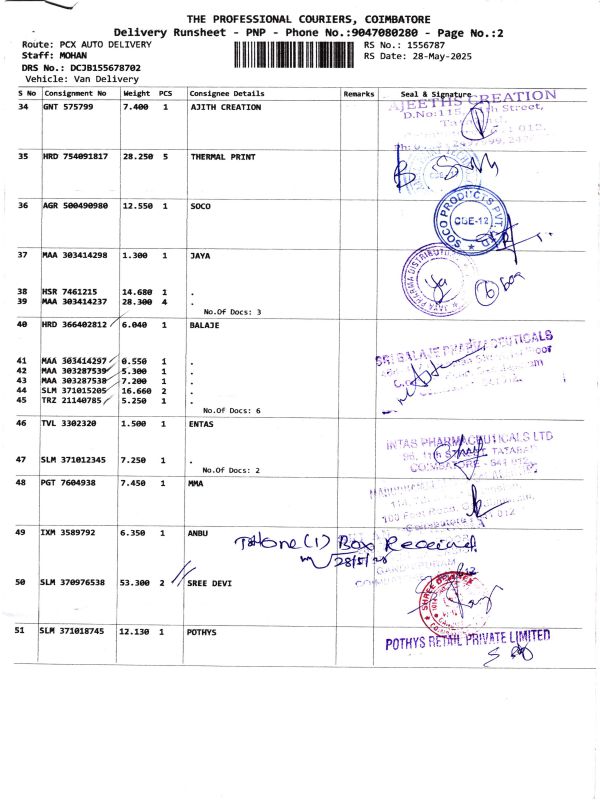 THE PROFESSIONAL COURIERS, COIMBATORE
Delivery Runsheet - PNP - Phone No.:9047080280 - Page No.:2
Route: PCX AUTO DELIVERY RS No.: 1556787
Staff: MOHAN RS Date: 28-May-2025
DRS No.: DCJB155678702
Vehicle: Van Delivery
S No Consignment No Weight PCS Consignee Details Remarks Seal & Signature
34 GNT 575799 7.400 1 AJITH CREATION
AJEETHS CREATION
D.No:115, Street,
35 HRD 754091817 28.250 5 THERMAL PRINT
36 AGR 500490980 12.550 1 SOCO
SOCO PRODUCTS PVT LTD
CBE-12
37 MAA 303414298 1.300 1 JAYA
JAYA PHARMA DISTRIBUTORS
38 HSR 7461215 14.680 1 .
39 MAA 303414237 28.300 4 .
No.Of Docs: 3
40 HRD 366402812 6.040 1 BALAJE
SRI BALAJE PHARMACEUTICALS
41 MAA 303414297 0.550 1 .
42 MAA 303287539 5.300 1 .
43 MAA 303287538 7.200 1 .
44 SLM 371015205 16.660 2 .
45 TRZ 21140785 5.250 1 .
No.Of Docs: 6
46 TVL 3302320 1.500 1 ENTAS
INTAS PHARMACEUTICALS LTD
COIMBATORE
47 SLM 371012345 7.250 1 .
No.Of Docs: 2
48 PGT 7604938 7.450 1 MMA
100 Feet Road,
49 IXM 3589792 6.350 1 ANBU
One (1) Box Received
28/5/25
50 SLM 370976538 53.300 2 SREE DEVI
51 SLM 371018745 12.130 1 POTHYS
POTHYS RETAIL PRIVATE LIMITED